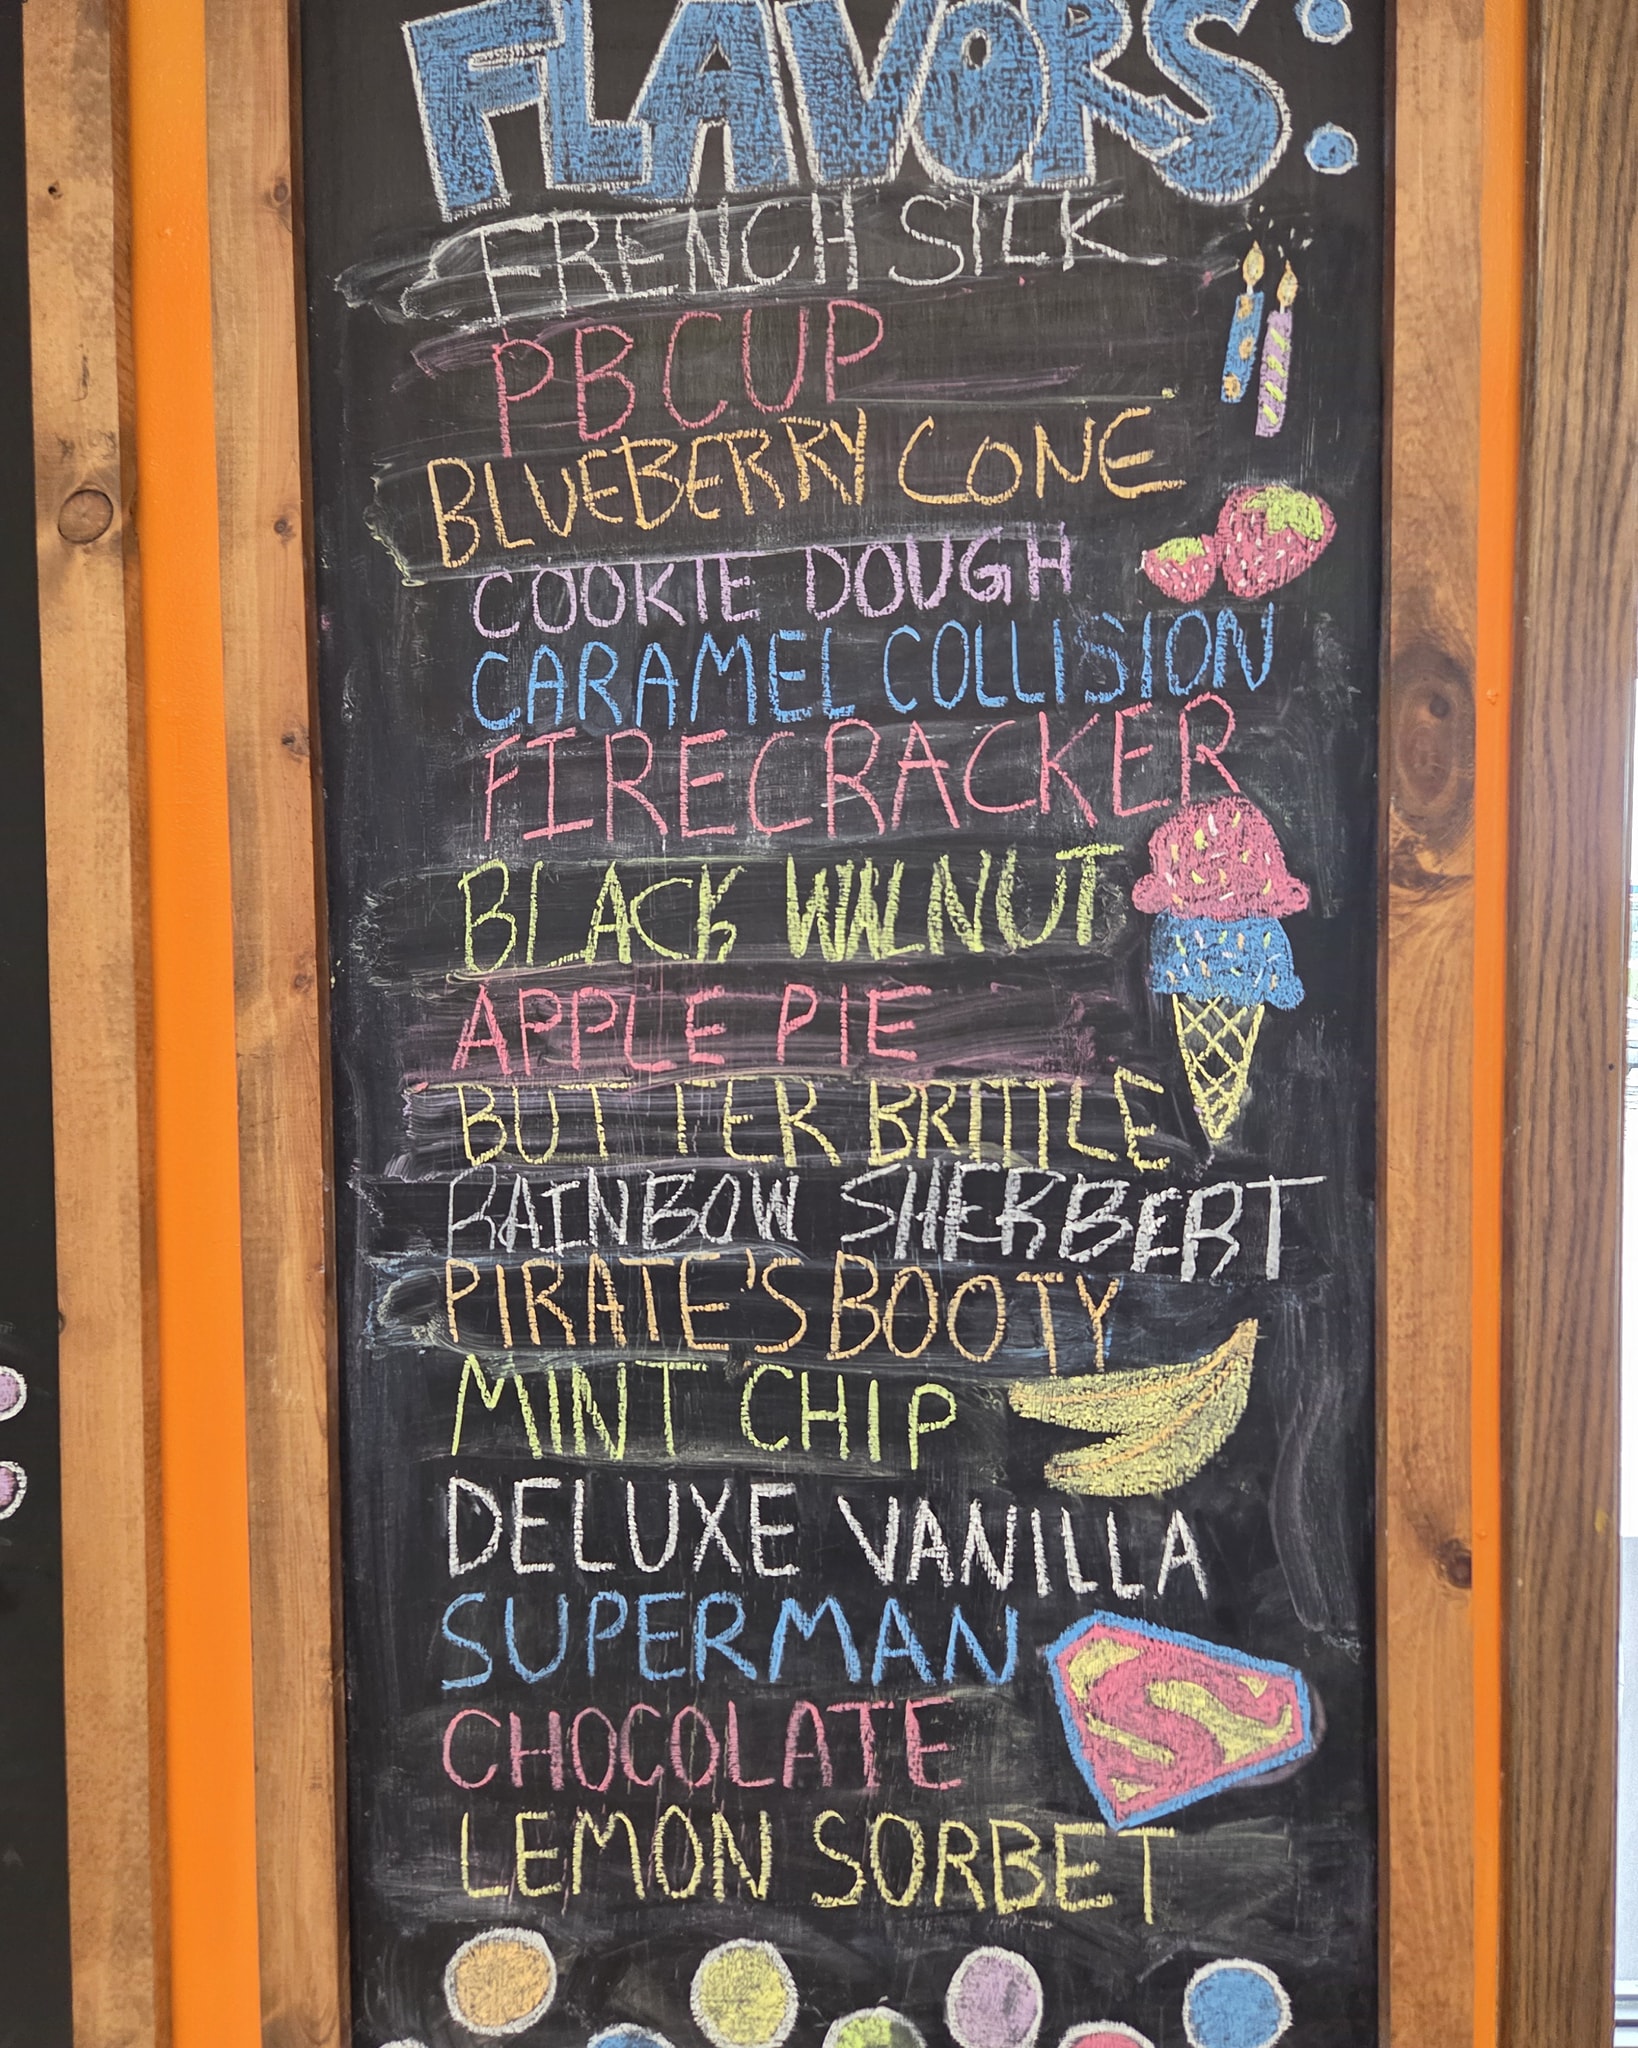 FLAVORS:
FRENCH SILK
PB CUP
BLUEBERRY CONE
COOKIE DOUGH
CARAMEL COLLISION
FIRECRACKER
BLACK WALNUT
APPLE PIE
BUTTER BRITTLE
RAINBOW SHERBERT
PIRATE'S BOOTY
MINT CHIP
DELUXE VANILLA
SUPERMAN
CHOCOLATE
S
LEMON SORBET